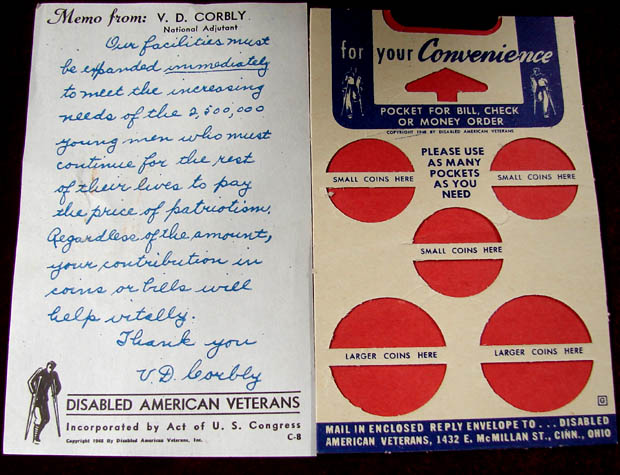 Memo from: V. D. CORBLY
National Adjutant
Our facilities must
be expanded immediately
to meet the increasing
needs of the 2,500,000
young men who must
continue for the rest
of their lives to pay
the price of patriotism.
Regardless of the amount,
your contribution in
coins or bills will
help vitally.
Thank you
V.D. Corbly
DISABLED AMERICAN VETERANS
Incorporated by Act of U. S. Congress
Copyright 1948 By Disabled American Veterans, Inc.
C-8
for your Convenience
POCKET FOR BILL, CHECK
OR MONEY ORDER
COPYRIGHT 1948 BY DISABLED AMERICAN VETERANS
PLEASE USE
AS MANY
POCKETS
AS YOU
NEED
SMALL COINS HERE
SMALL COINS HERE
SMALL COINS HERE
LARGER COINS HERE
LARGER COINS HERE
MAIL IN ENCLOSED REPLY ENVELOPE TO... DISABLED
AMERICAN VETERANS, 1432 E. McMILLAN ST., CINN., OHIO